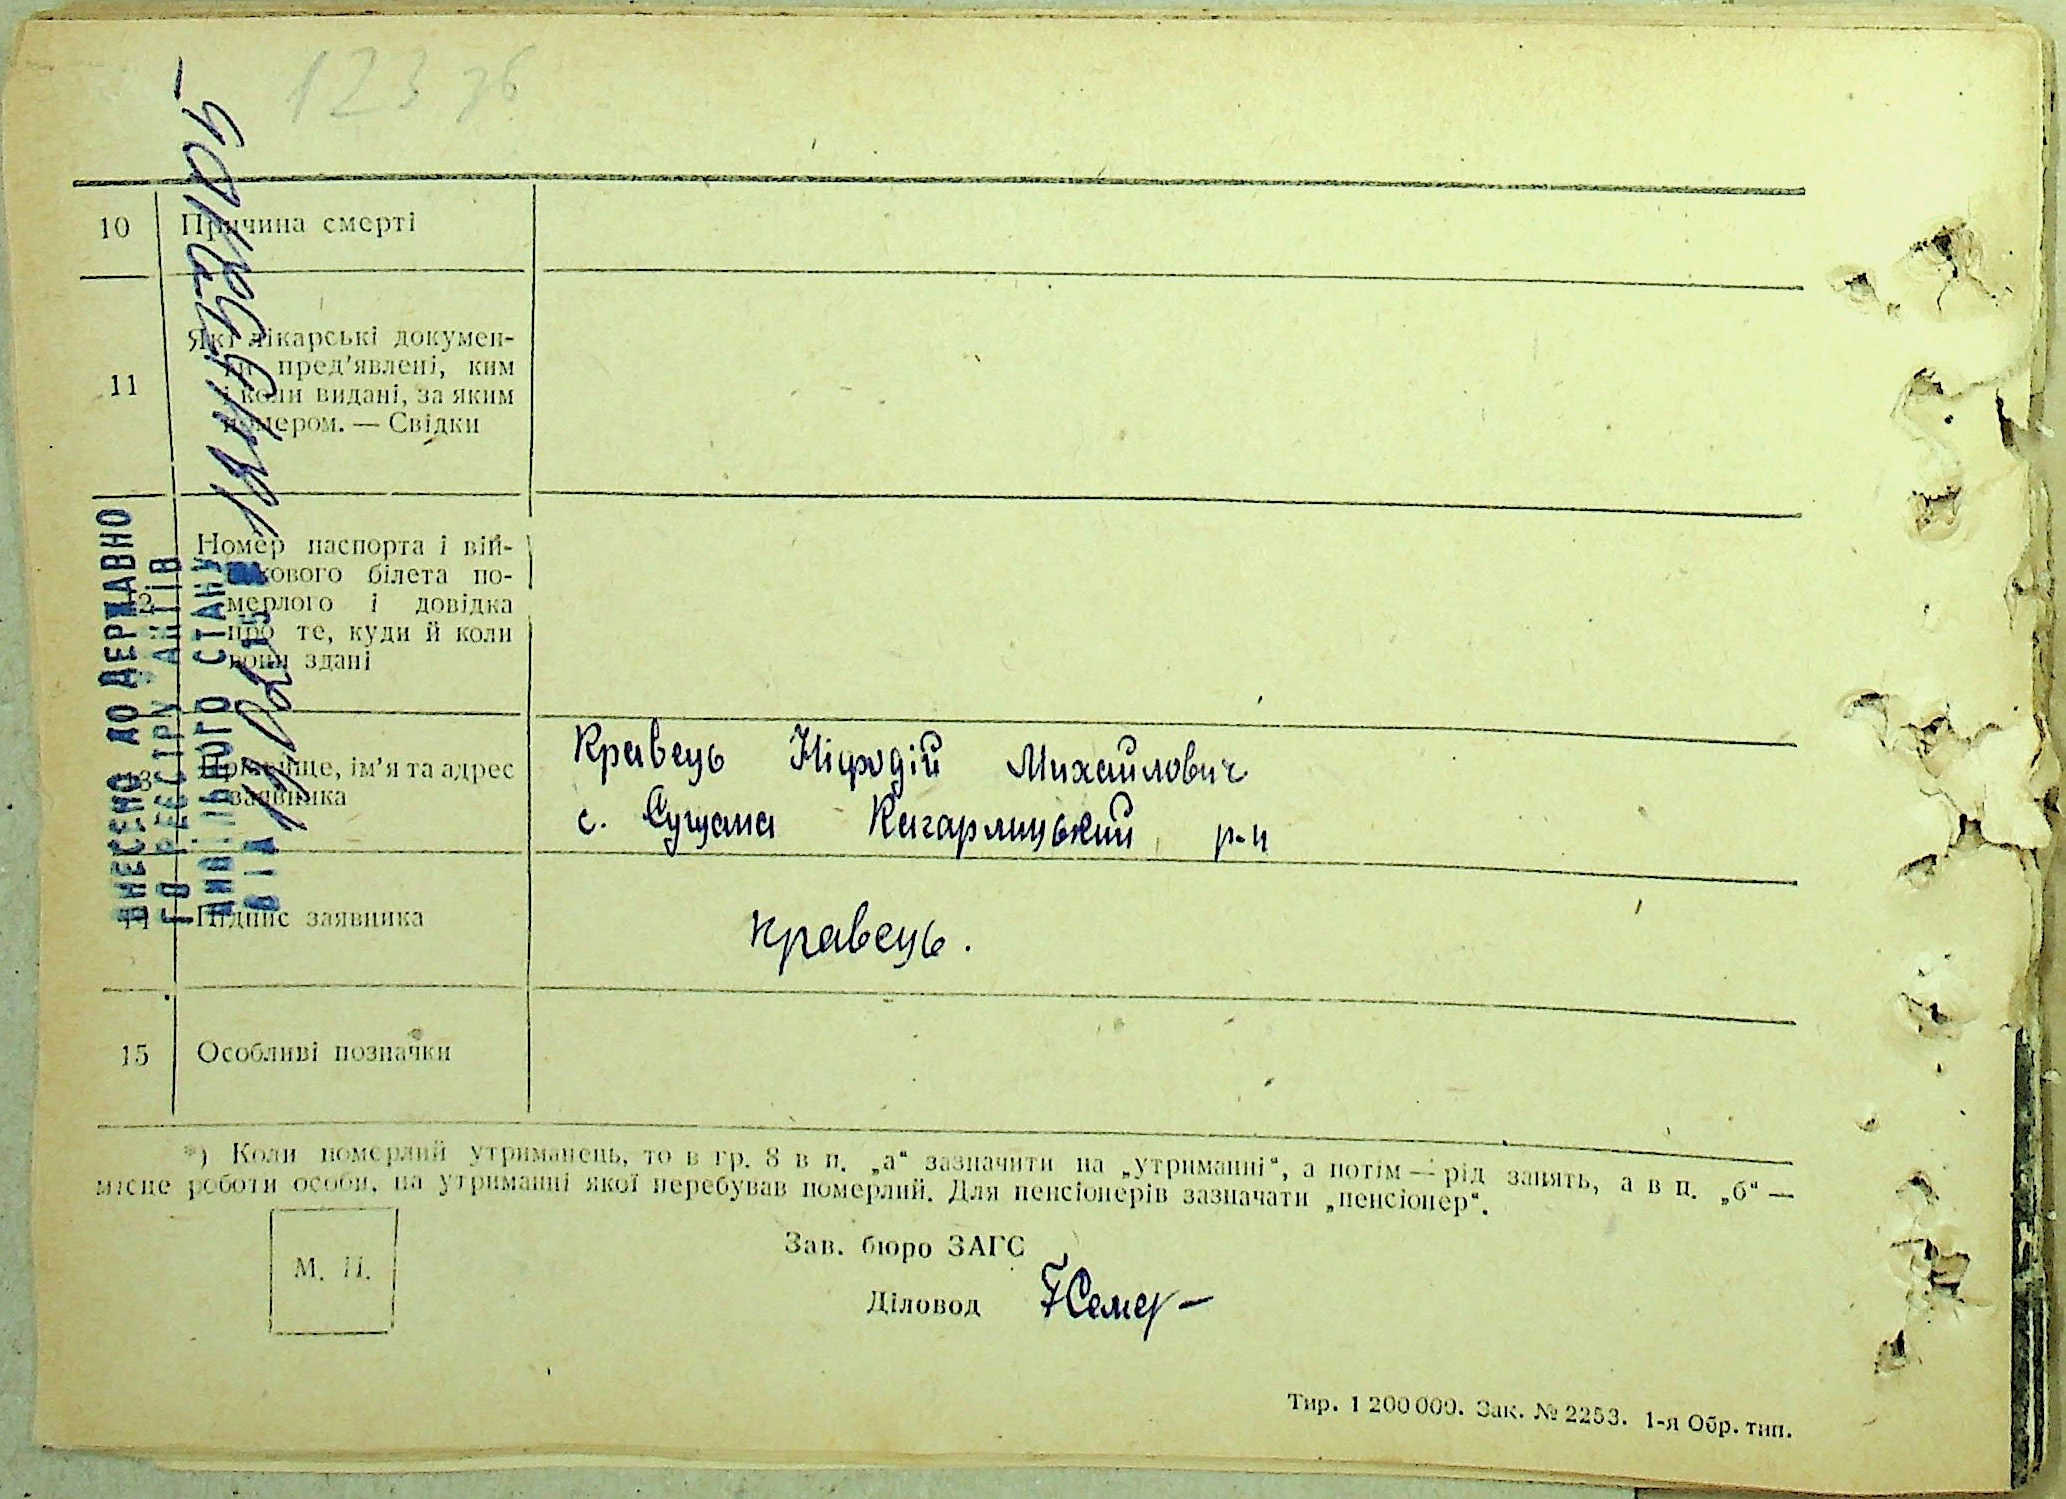 123 зб
10 Причина смерті
11 Які лікарські докумен-
ти пред'явлені, ким
і коли видані, за яким
номером. — Свідки
12 Номер паспорта і вій-
ськового білета по-
мерлого і довідка
про те, куди й коли
вони здані
13 Прізвище, ім'я та адрес
заявника
Кравець Михайлович
с. Сущана Кагарлицький р-н
14 Підпис заявника
Кравець.
15 Особливі позначки
*) Коли померлий утриманець, то в гр. 8 в п. „а“ зазначити на „утриманні“, а потім — рід занять, а в п. „б“ —
місце роботи особи, на утриманні якої перебував померлий. Для пенсіонерів зазначати „пенсіонер“.
М. П.
Зав. бюро ЗАГС
Діловод
Тир. 1 200 000. Зак. № 2253. 1-я Обр. тип.
ВНЕСЕНО ДО ДЕРЖАВНО
ГО РЕЄСТРУ АКТІВ
ЦИВІЛЬНОГО СТАНУ
ВІД